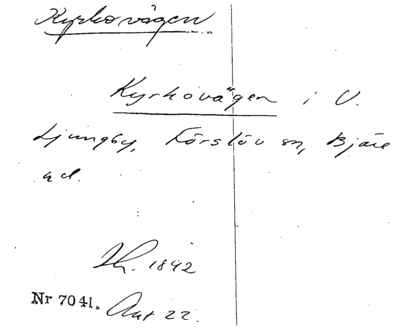 Kyrkovägen
Kyrkovägen i V.
Ljungby, Förslöv sn, Bjäre
hd.
1842
Nr 7041. Akt 22.